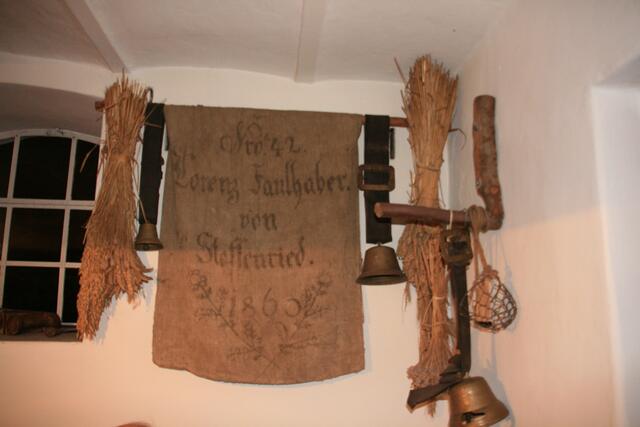 Nro 42.
Lorenz Faulhaber.
von
Steffenried.
1860